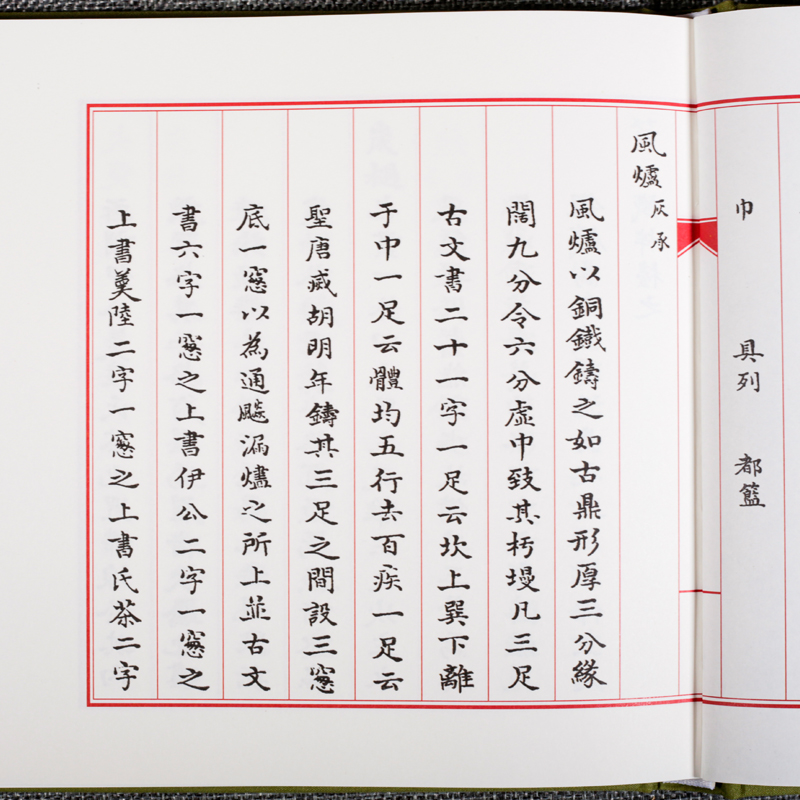 巾 具列 都籃
風爐 灰承
風爐以銅鐵鑄之如古鼎形厚三分緣
闊九分令六分虛中致其杇墁凡三足
古文書二十一字一足云坎上巽下離
于中一足云體均五行去百疾一足云
聖唐滅胡明年鑄其三足之間設三窻
底一窻以為通飈漏燼之所上並古文
書六字一窻之上書伊公二字一窻之
上書羹陸二字一窻之上書氏茶二字